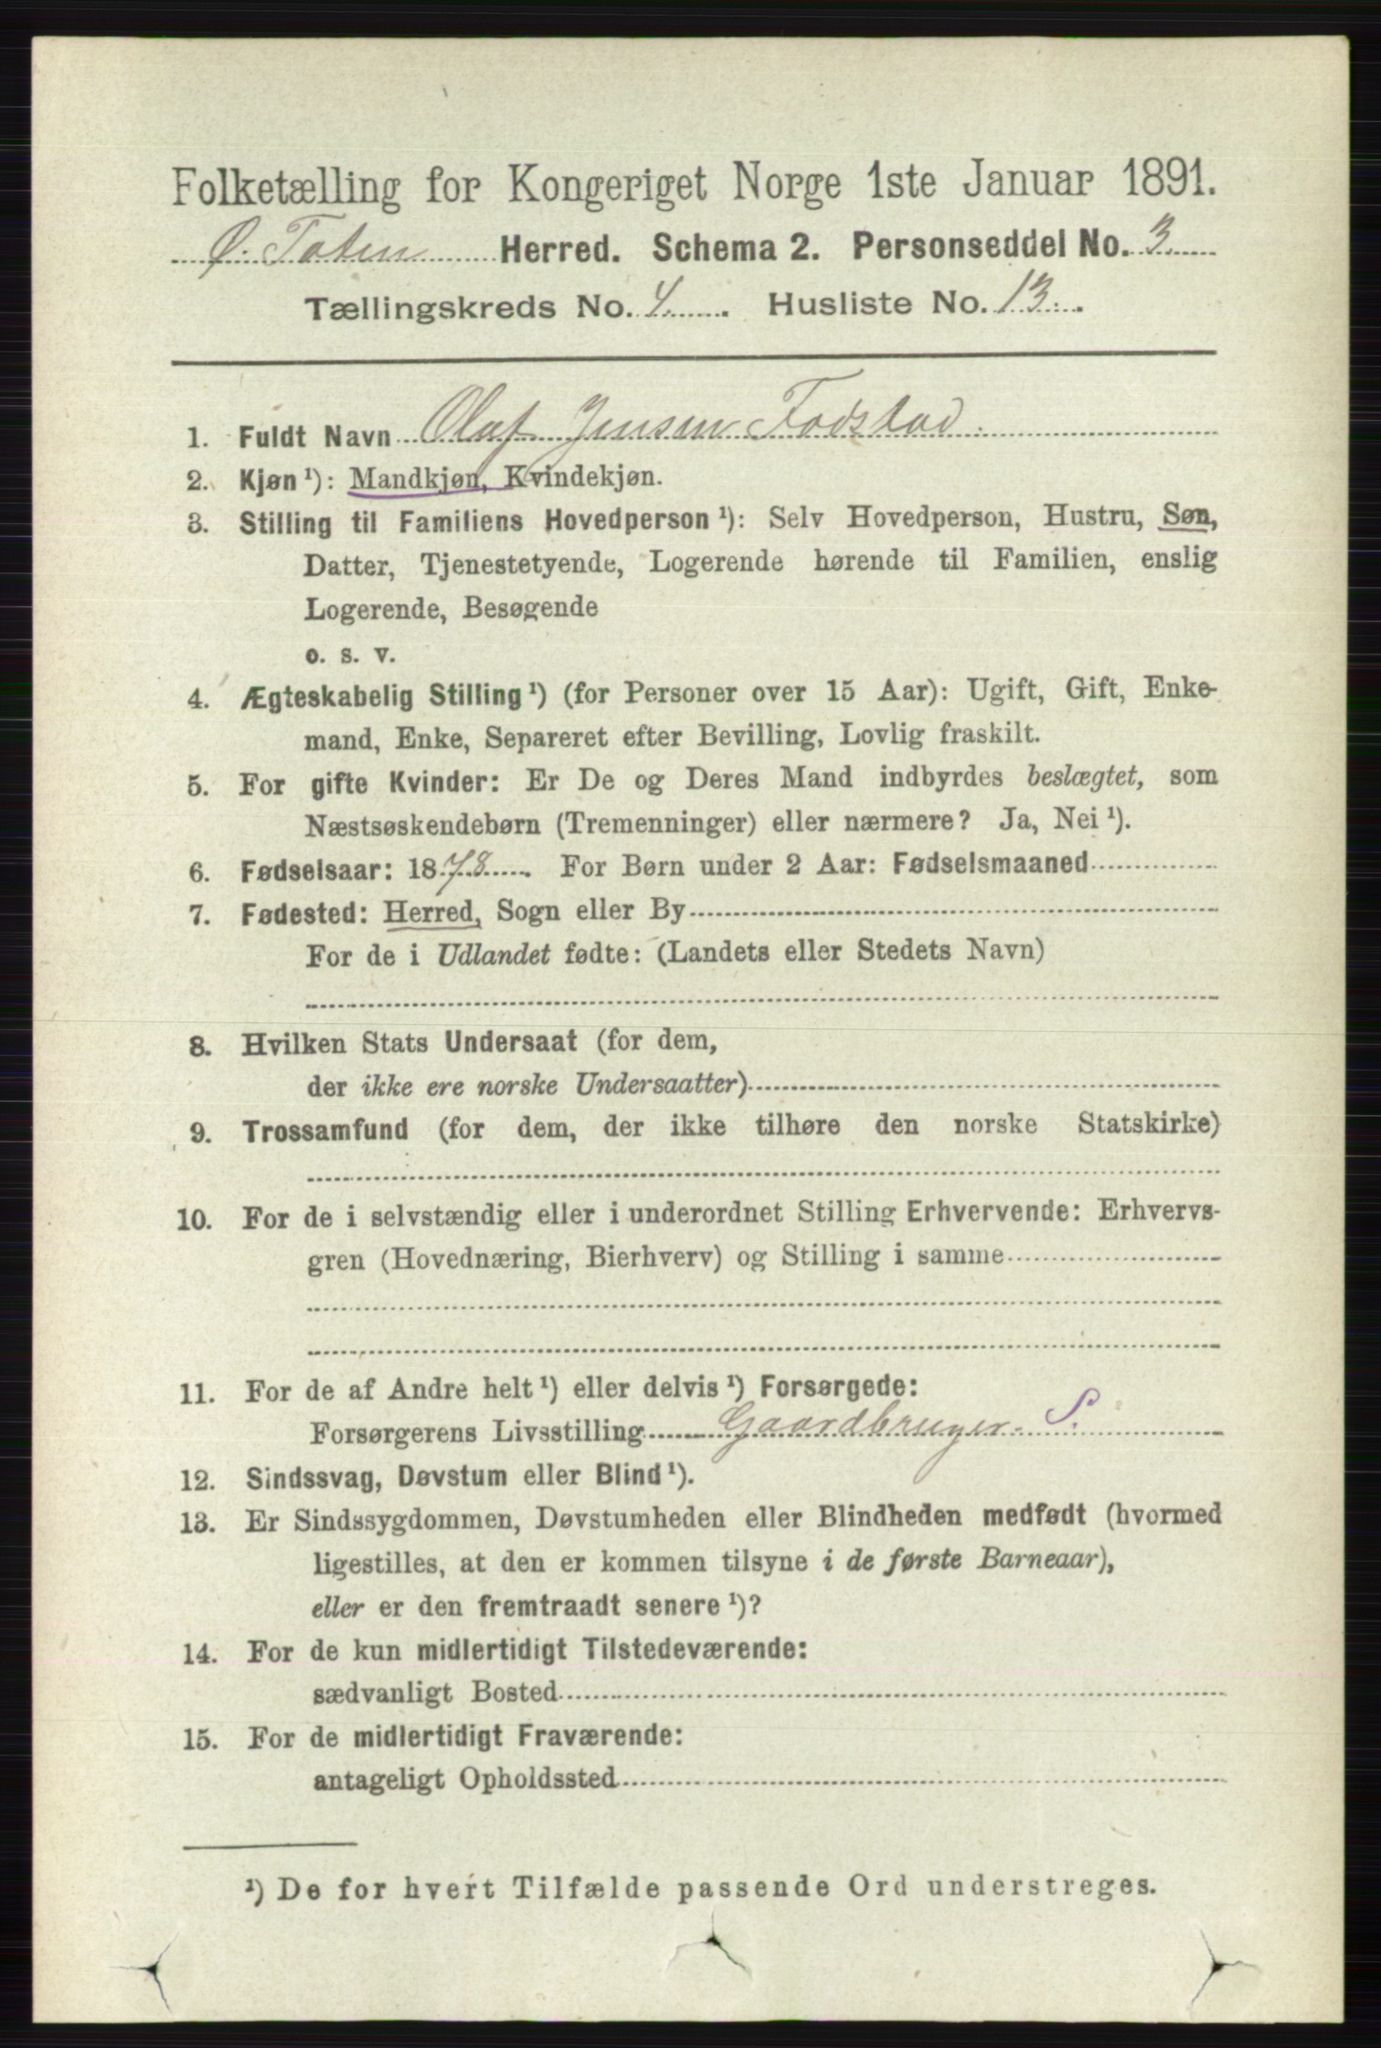 Folketælling for Kongeriget Norge 1ste Januar 1891.
Ø. Toten Herred. Schema 2. Personseddel No. 3
Tællingskreds No. 4. Husliste No. 13.
1. Fuldt Navn Olaf Jensen Fodstad.
2. Kjøn ¹): Mandkjøn, Kvindekjøn.
3. Stilling til Familiens Hovedperson ¹): Selv Hovedperson, Hustru, Søn,
Datter, Tjenestetyende, Logerende hørende til Familien, enslig
Logerende, Besøgende
o. s. v.
4. Ægteskabelig Stilling ¹) (for Personer over 15 Aar): Ugift, Gift, Enke-
mand, Enke, Separeret efter Bevilling, Lovlig fraskilt.
5. For gifte Kvinder: Er De og Deres Mand indbyrdes beslægtet, som
Næstsøskendebørn (Tremenninger) eller nærmere? Ja, Nei ¹).
6. Fødselsaar: 1878. For Børn under 2 Aar: Fødselsmaaned
7. Fødested: Herred, Sogn eller By
For de i Udlandet fødte: (Landets eller Stedets Navn)
8. Hvilken Stats Undersaat (for dem,
der ikke ere norske Undersaatter)
9. Trossamfund (for dem, der ikke tilhøre den norske Statskirke)
10. For de i selvstændig eller i underordnet Stilling Erhvervende: Erhvervs-
gren (Hovednæring, Bierhverv) og Stilling i samme
11. For de af Andre helt ¹) eller delvis ¹) Forsørgede:
Forsørgerens Livsstilling Gaardbruger. S.
12. Sindssvag, Døvstum eller Blind ¹).
13. Er Sindssygdommen, Døvstumheden eller Blindheden medfødt (hvormed
ligestilles, at den er kommen tilsyne i de første Barneaar),
eller er den fremtraadt senere ¹)?
14. For de kun midlertidigt Tilstedeværende:
sædvanligt Bosted
15. For de midlertidigt Fraværende:
antageligt Opholdssted
¹) De for hvert Tilfælde passende Ord understreges.